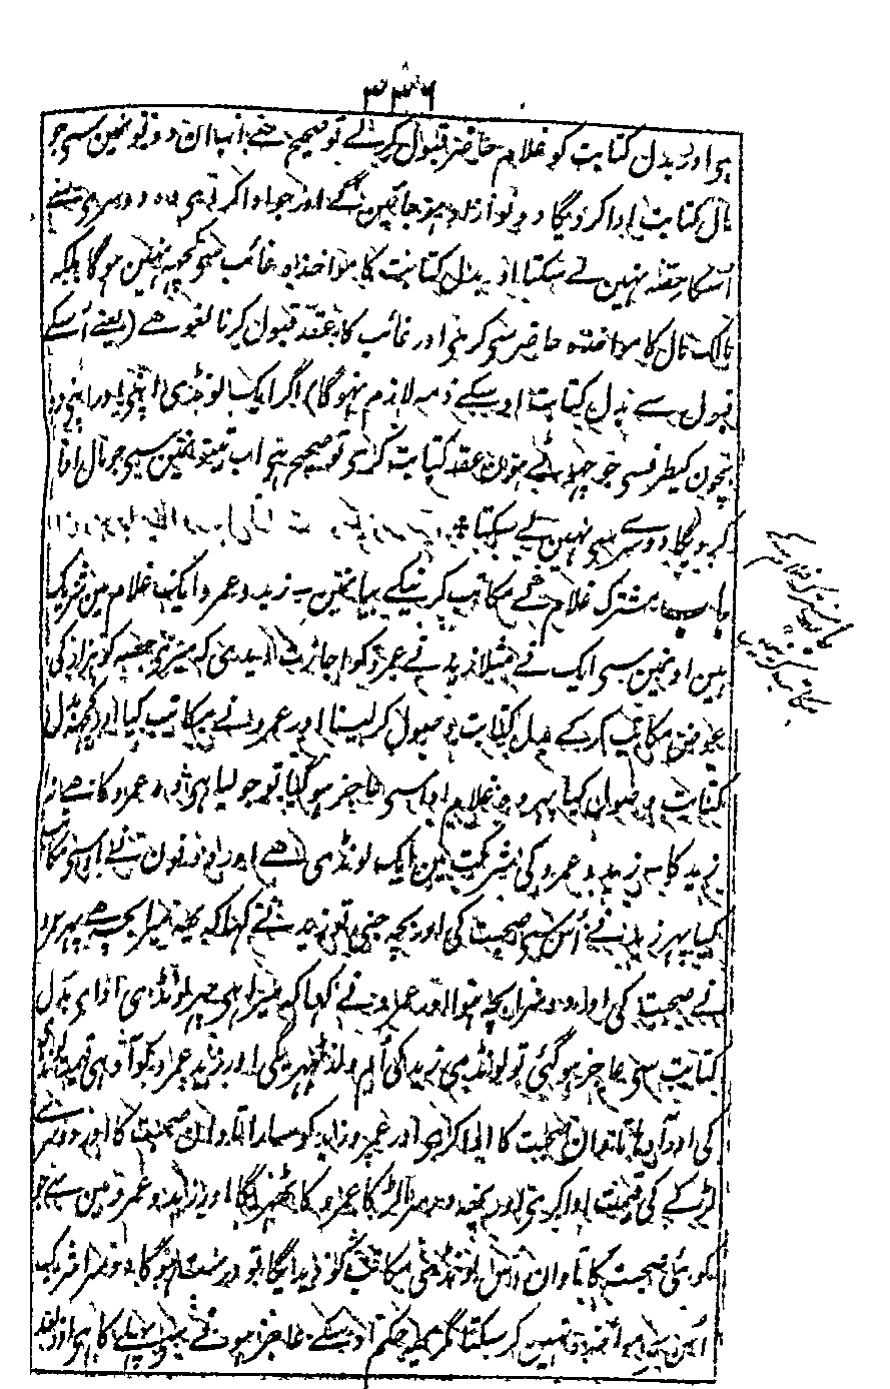 ۳۳۶
ہی اور بدل کتابت کو غلام حاضر قبول کر لے تو صحیح ہے اب ان دونو نمین سی جو
مال کتابت ادا کر دیگا دونو آزاد ہو جائین گے اور جو ادا کر دی وہ دوسری سے
اُسکا حصہ نہین لے سکتا اور بدل کتابت کا مواخذہ غائب سی کچہہ نہین ہوگا بلکہ
مالک مال کا مواخذہ حاضر سی کر ہی اور غائب کا عقد قبول کرنا لغو ہے (یعنے اُسکے
قبول سے بدل کتابت اوسکے ذمہ لازم نہوگا) اگر ایک لونڈی اپنی اور اپنی دو
بچون کیطرفسی جو چہوٹے ہون عقد کتابت کری تو صحیح ہی اب تینو نمین سی جو مال ادا
کر دیگا دوسرے سی نہین لے سکتا
باب مشترک غلام کے مکاتب کرنیکے بیانمین زید و عمرو ایک غلام مین شریک
ہین اونمین سی ایک نے مثلا زید نے عمرو کو اجازت دیدی کہ میری حصہ کو ہزار کی
عوض مکاتب کر کے بدل کتابت وصول کر لینا اور عمرو نے مکاتب کیا اور کچہہ بدل
کتابت وصول کیا پہر وہ غلام ادا سی عاجز ہو گیا تو جو لیا ہی وہ عمرو کا ہے نہ
زید کا زید و عمرو کی شرکت مین ایک لونڈی ہے اور دونون نے اوسی مکاتب
کیا پہر زید نے اُس سی صحبت کی اور بچہ جنی تو زید نے کہا کہ یہ میرا بچہ ہے پہر عمرو
نے صحبت کی اور دوسرا بچہ ہوا اور عمرو نے کہا کہ میرا ہی پہر لونڈی ادای بدل
کتابت سی عاجز ہو گئی تو لونڈی زید کی اُم ولد ٹھہریگی اور زید عمرو کو آدہی قیمت لونڈی
کی اور آدہا تاوان صحبت کا ادا کرے اور عمرو زید کو سارا تاوان صحبت کا اور دوسرے
لڑکے کی قیمت ادا کری اور یہہ دوسرا لڑکا عمرو کا ٹھہریگا اور زید و عمرو مین سے جو
کوئی صحبت کا تاوان اُس لونڈی مکاتب کو دیدیگا تو درست ہوگا دوسرا شریک
اُس سی مواخذہ نہین کر سکتا مگر یہہ حکم اوسکے عاجز ہونے سے پہلے کا ہی اور بعد